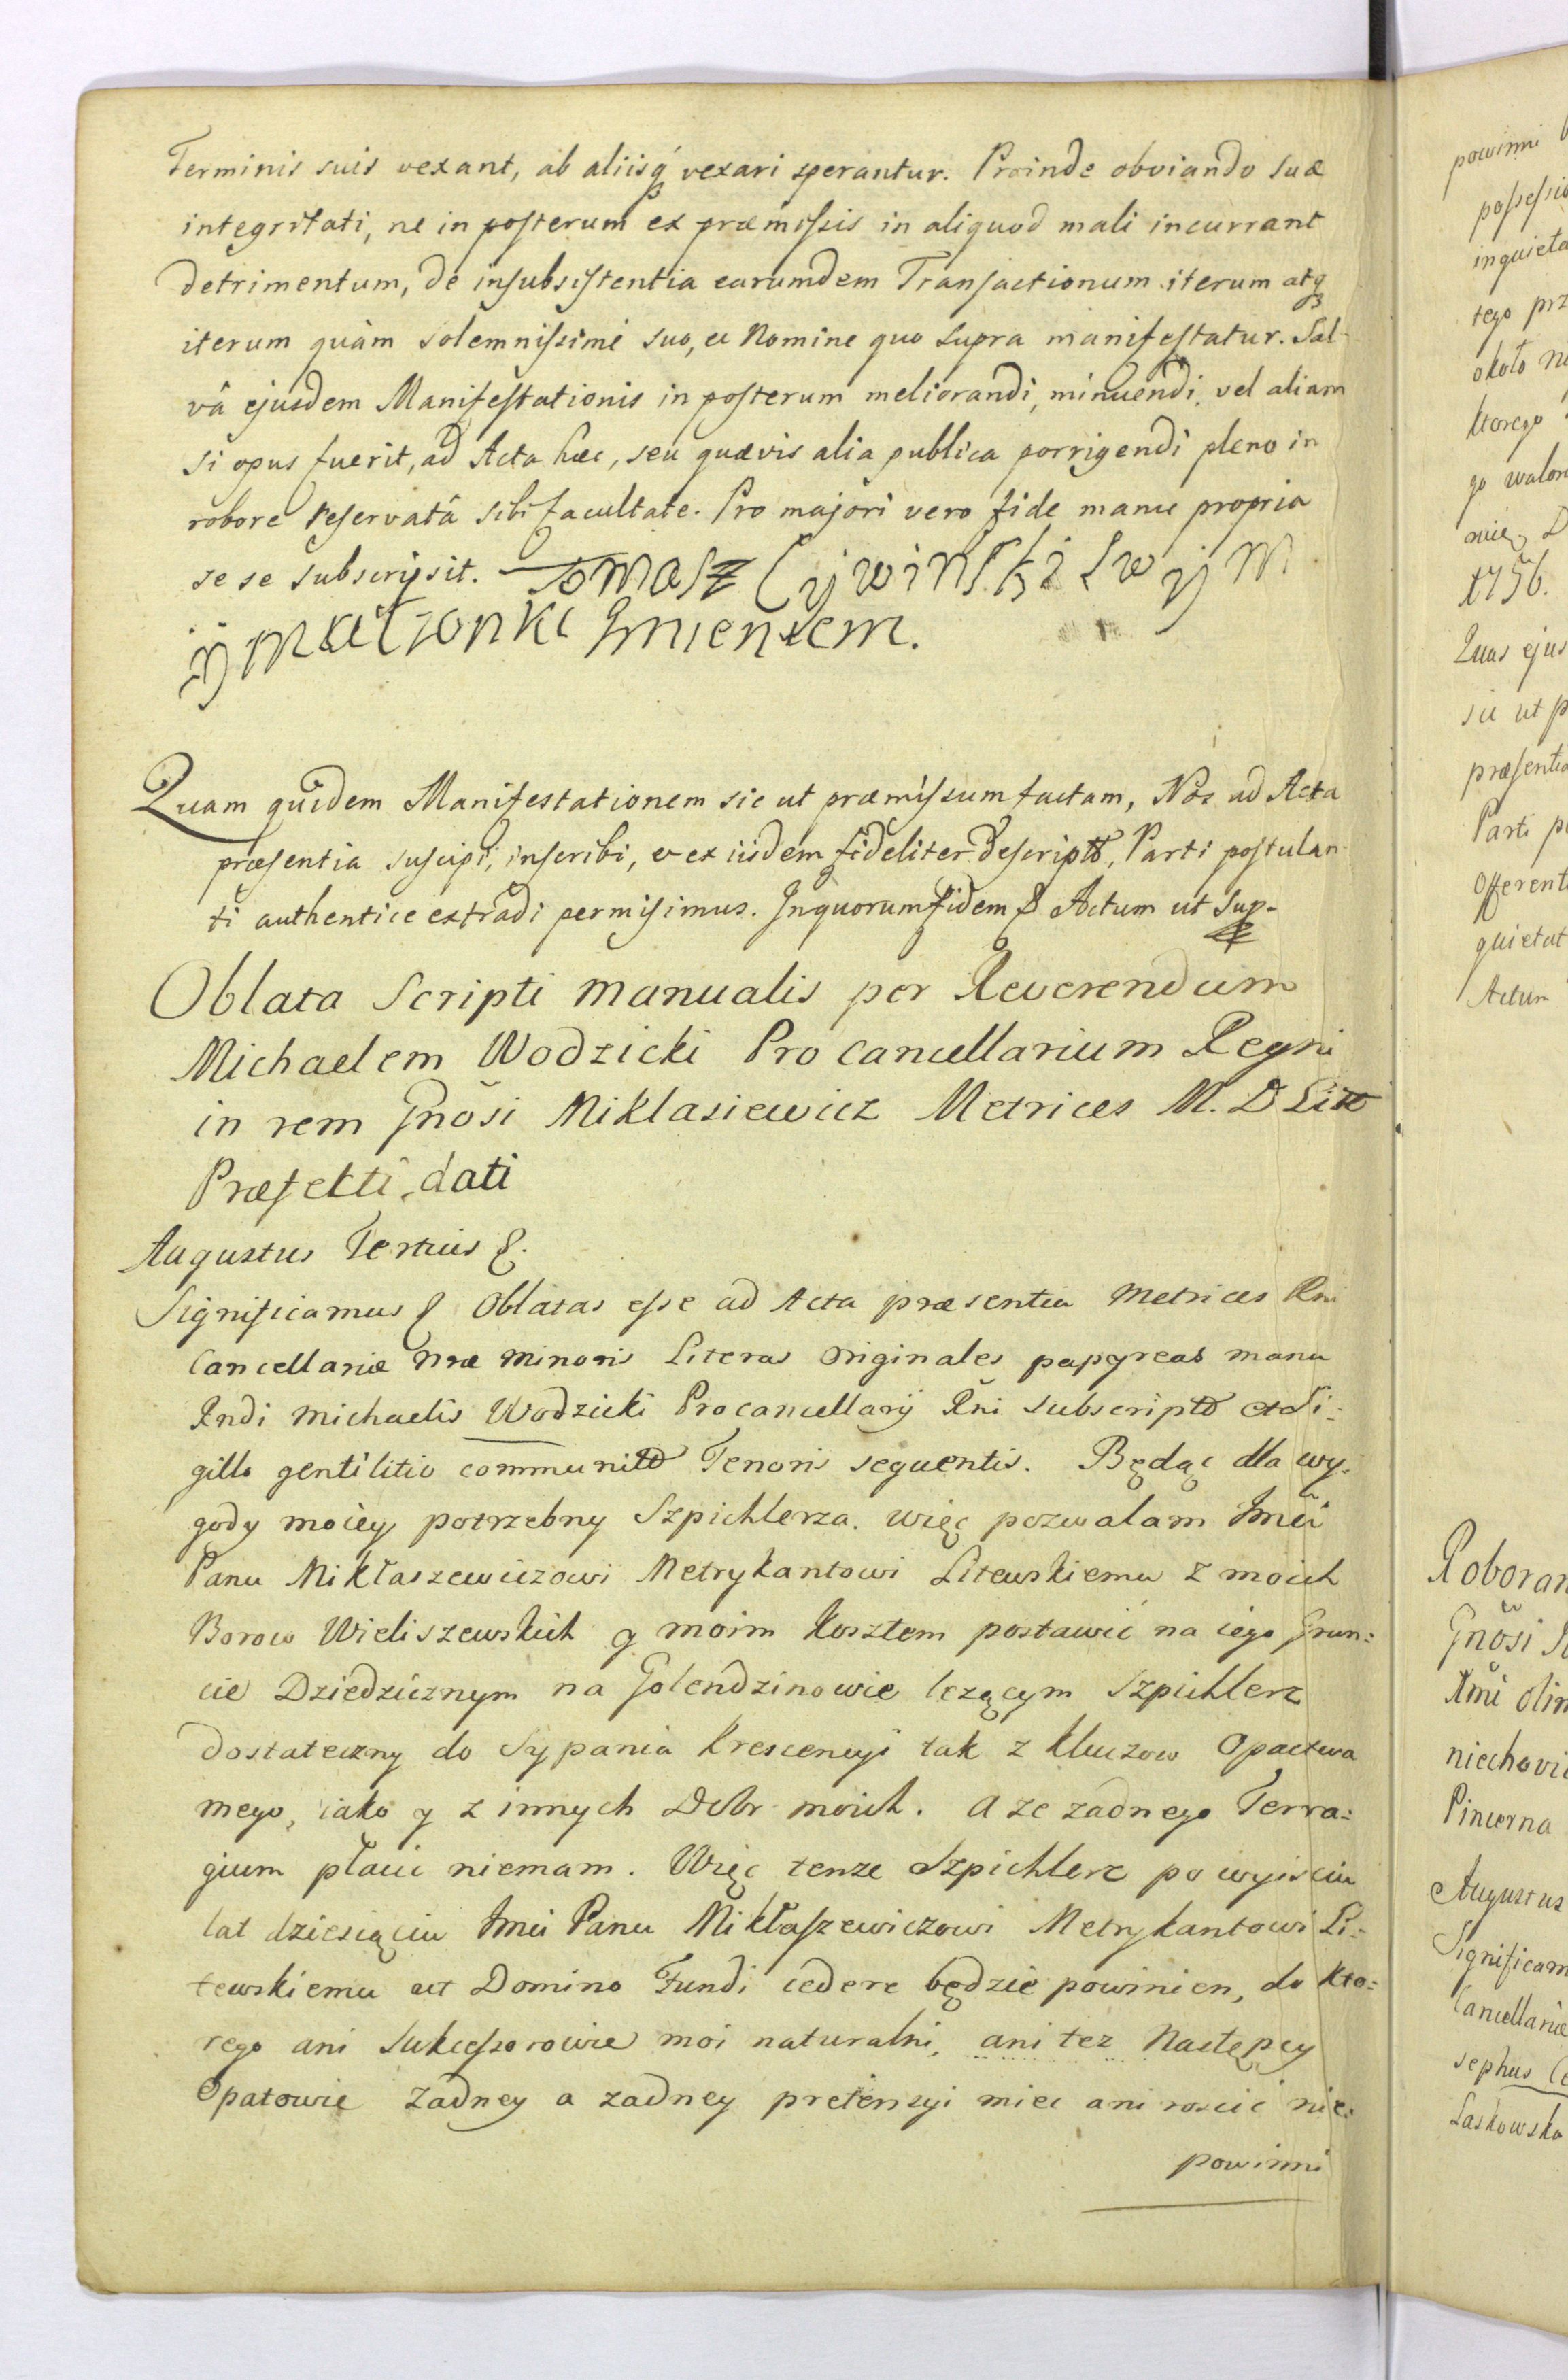 Terminis suis vexant, ab aliisq́ vexari sperantur. Proinde obviando suæ
integritati, ne in posterum ex præmissis in aliquod mali incurrant
detrimentum, de insubsistentia earumdem Transactionum iterum atq
iterum quàm solemnissimè suo, et Nomine quo supra manifestatur. Sal-
vâ ejusdem Manifestationis in posterum meliorandi, minuendi, vel aliam
si opus fuerit, ad Acta hæc, seu quævis alia publica porrigendi pleno in
robore reservatâ sibi facultate. Pro majori vero fide manu propria
se se subscripsit. Tomasz Cywinski swym
ÿ Małzonki Jmieniem.
Quam quidem Manifestationem sic ut præmissum factam, Nos ad Acta
præsentia suscipi, inscribi, et ex iisdem fideliter descriptã, Parti postulan-
ti authentice extradi permisimus. In quorum fidem & Actum ut Sup-
Oblata Scripti manualis per Reverendum
Michaelem Wodzicki Procancellarium Regni
in rem Gnõsi Miklasiewicz Metrices M. D Litt
Præfecti dati
Augustus Tertius &.
Significamus & Oblatas esse ad Acta præsentia Metrices Rni
Cancellariæ Nræ Minoris Literas Originales papyreas manu
Rndi Michaelis Wodzicki Procancellarÿ Rñi subscriptas et Si:
gillo gentilitio communitas Tenoris sequentis. Będąc dla wy:
gody moiey potrzebny Szpichlerza. więc pozwalam Jmci
Panu Mikłaszewiczowi Metrykantowi Litewskiemu z moich
Borow Wieliszewskich y moim kosztem postawić na iego Grun:
cie Dziedzicznym na Golendzinowie leżącym Szpichlerz
dostateczny do Sypania krescencyi tak z kluczow Opactwa
mego, iako y z innych Dobr moich. A ze zadnego Terra:
gium płacic niemam. Więc tenze Szpichlerz po wyisciu
lat dziesiąciu Jmci Panu Mikłaszewiczowi Metrykantowi Li:
tewskiemu ut Domino Fundi cedere będzie powinien, do kto:
rego ani Sukcessorowie moi naturalni, ani tez Nastęcy
Opatowie zadney a zadney pretensyi miec ani roscić nie:
powinni
powinni
possessio
inquieta
tego prz
około
ktorego
go walor
nię, D
1756.
Quas ejus
sic ut p
præsentia
Parti po
Offerenti
quietat
Actum
Roboran
Gnõsi
Rmi olim
niechovi
Pincerna
Augustus
Significam
Cancellariæ
sephus
Laskowska